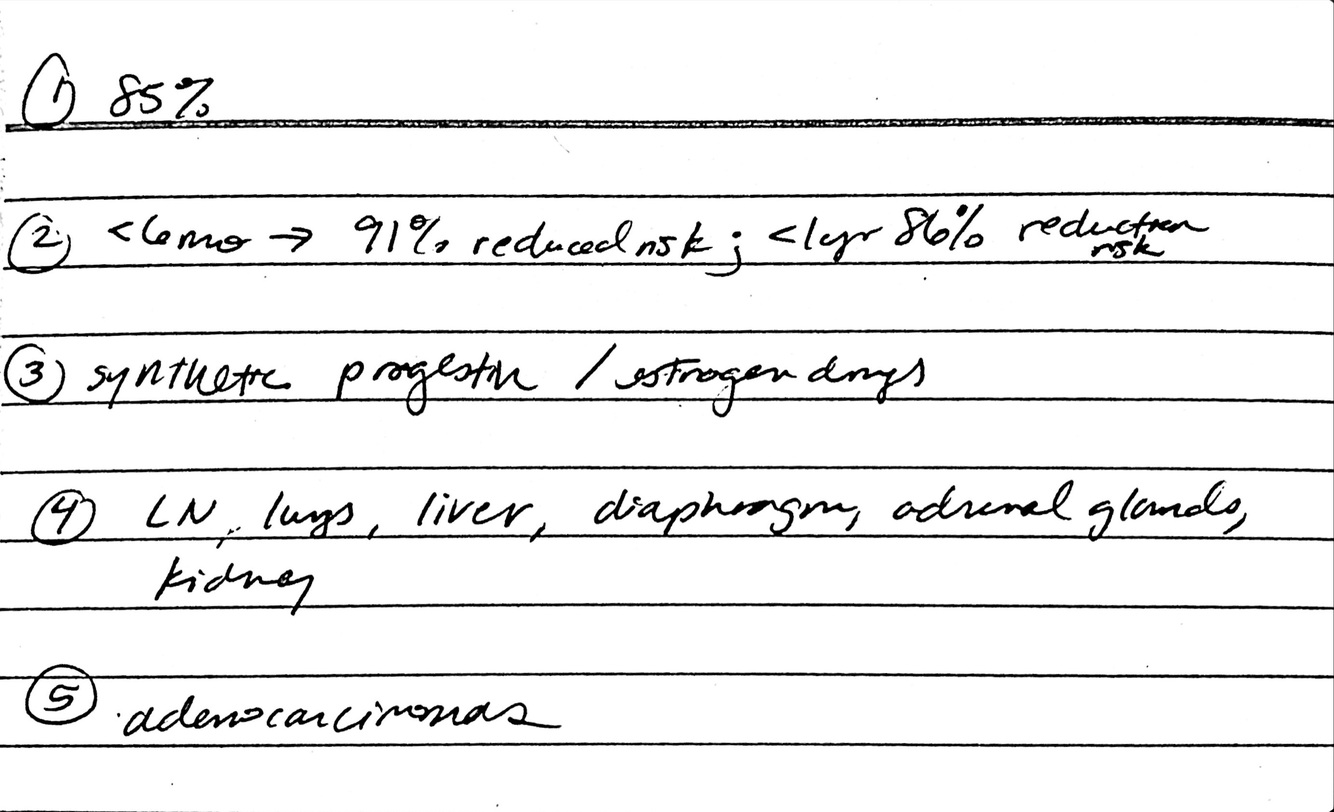 ① 85%
② <6mo → 91% reduced risk; <1yr 86% reduction
risk
③ synthetic progestin / estrogen drugs
④ LN, lungs, liver, diaphragm, adrenal glands,
kidney
⑤ adenocarcinomas